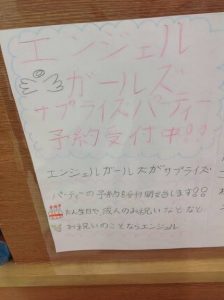 エンジェル
ガールズ
サプライズパーティー
予約受付中!!
エンジェルガールズがサプライズ
パーティーの予約を受け付
お誕生日や成人のお祝いなどなど
お祝いのことならエンジェル